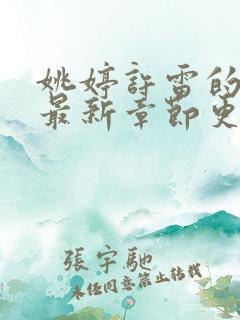 姚婷許雷的
最新章節更
張宇馳
未任同意禁止轉載